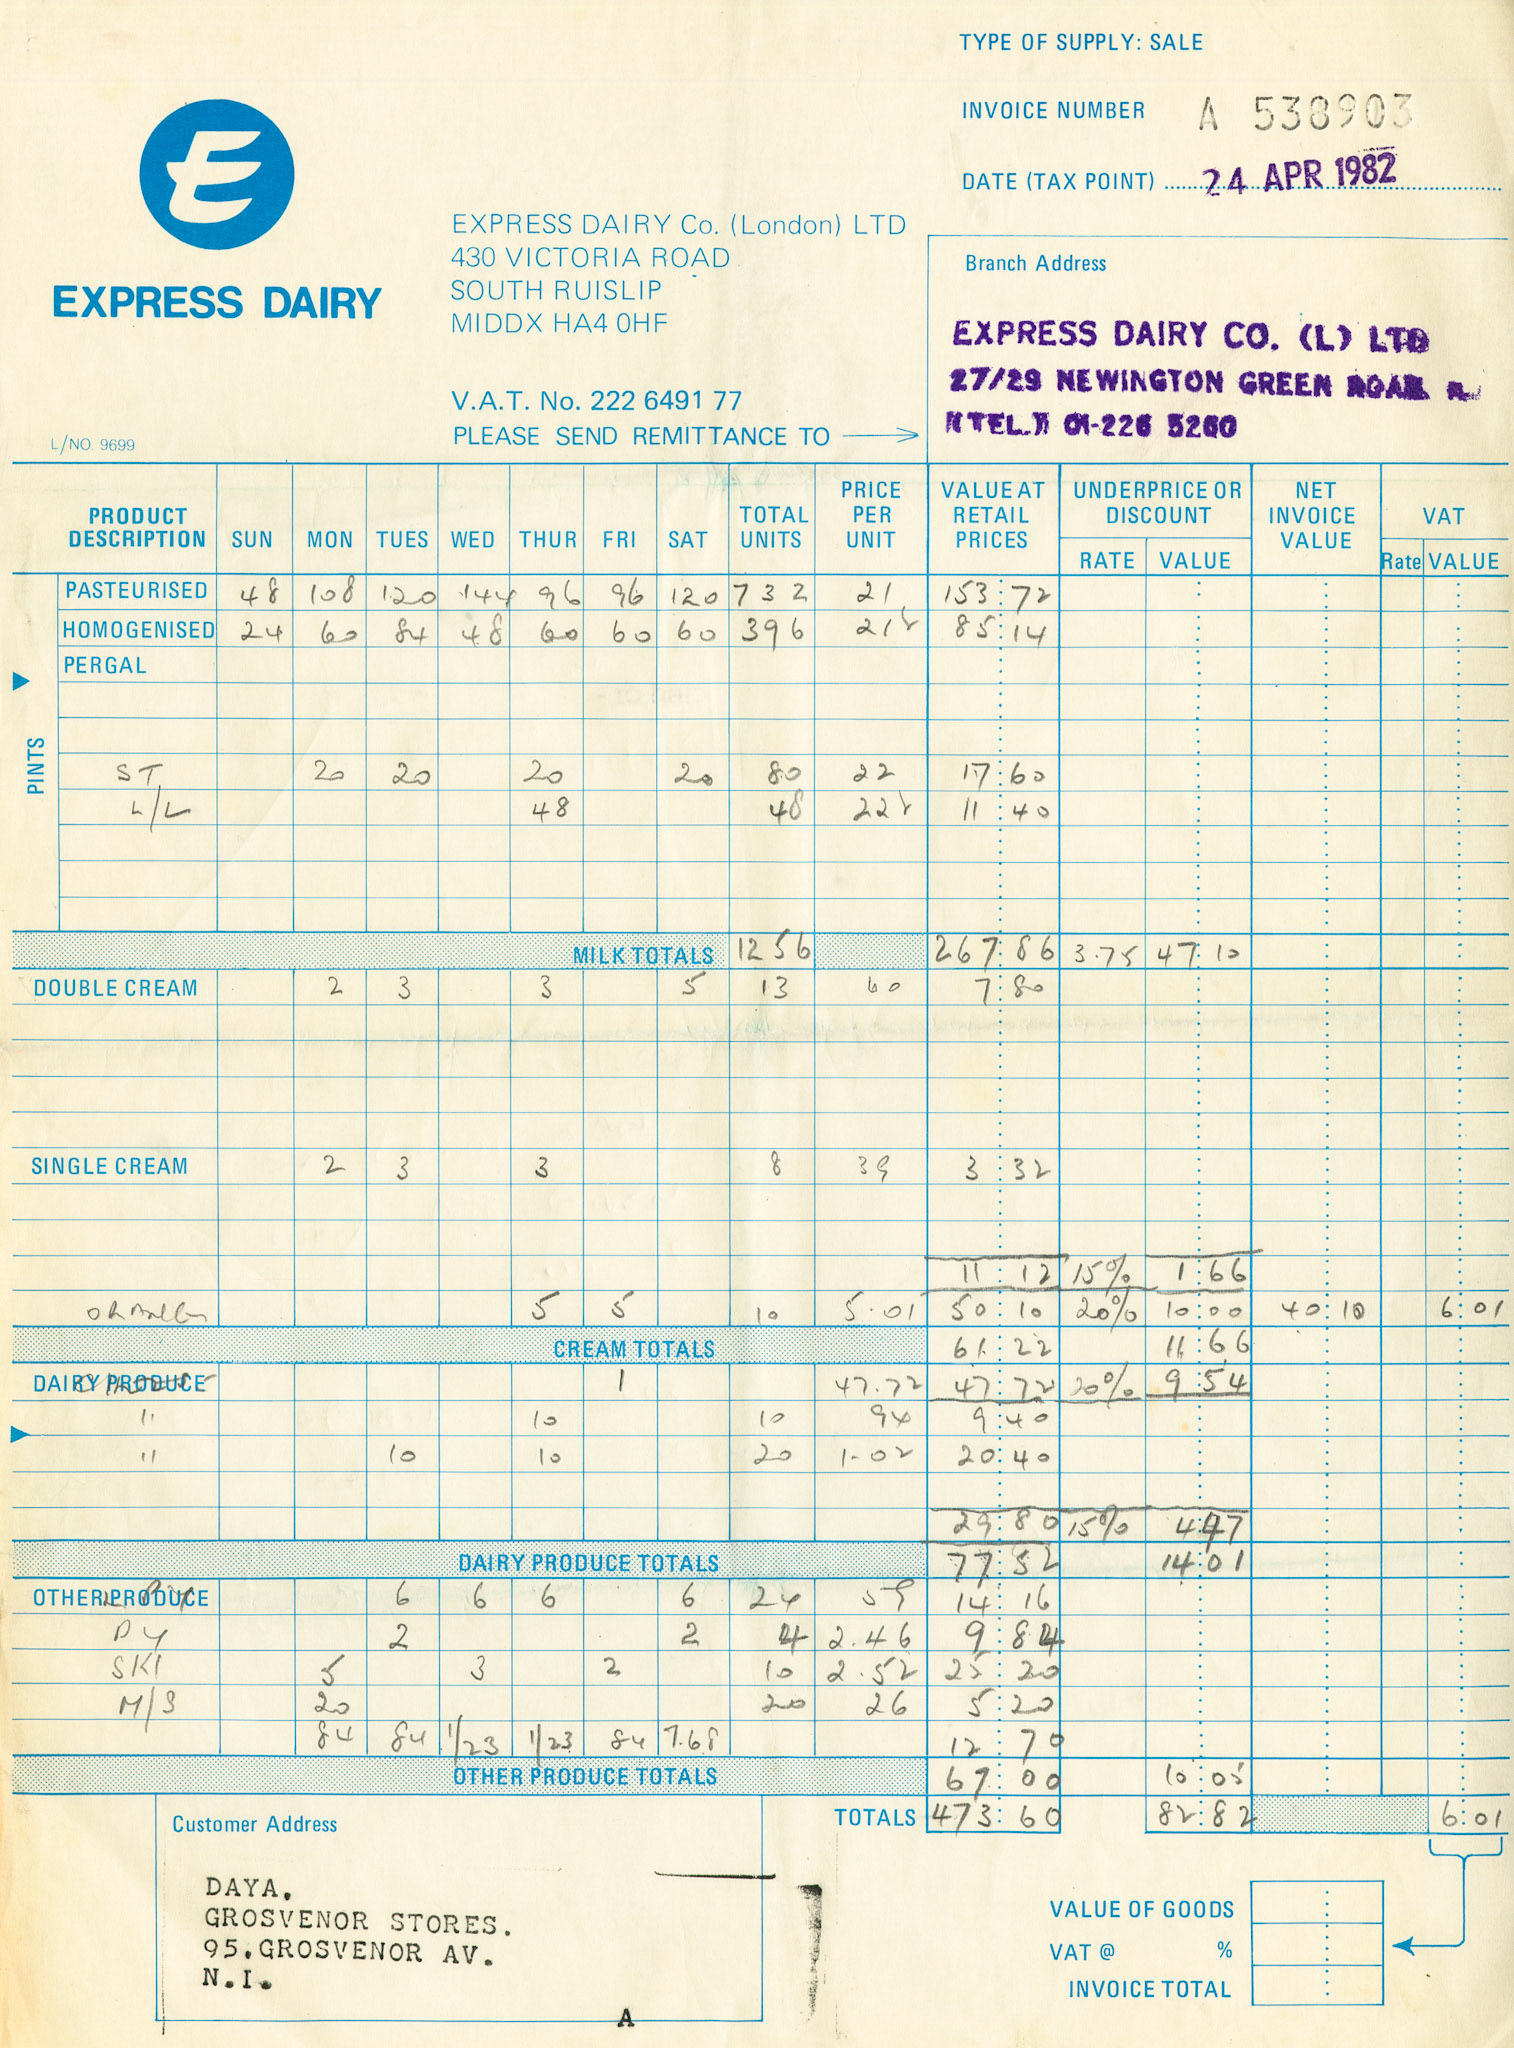 TYPE OF SUPPLY: SALE
INVOICE NUMBER A 538903
DATE (TAX POINT) 24 APR 1982
E
EXPRESS DAIRY
EXPRESS DAIRY Co. (London) LTD
430 VICTORIA ROAD
SOUTH RUISLIP
MIDDX HA4 0HF
V.A.T. No. 222 6491 77
PLEASE SEND REMITTANCE TO
L/NO. 9699
Branch Address
EXPRESS DAIRY CO. (L) LTD
27/29 NEWINGTON GREEN ROAD N
(TEL.) 01-226 5260
PRODUCT DESCRIPTION SUN MON TUES WED THUR FRI SAT TOTAL UNITS PRICE PER UNIT VALUE AT RETAIL PRICES UNDERPRICE OR DISCOUNT RATE VALUE NET INVOICE VALUE VAT Rate VALUE
PINTS
PASTEURISED 48 108 120 144 96 96 120 732 21 153 72
HOMOGENISED 24 60 84 48 60 60 60 396 21½ 85 14
PERGAL
ST 20 20 20 20 80 22 17 60
L/L 48 48 22½ 11 40
MILK TOTALS 1256 267 86 3.75 47 10
DOUBLE CREAM 2 3 3 5 13 60 7 80
SINGLE CREAM 2 3 3 8 39 3 32
11 12 15% 1 66
5 5 10 5.01 50 10 20% 10 00 40 10 6 01
CREAM TOTALS 61 22 11 66
DAIRY PRODUCE 1 47.72 47 72 20% 9 54
" 10 10 94 9 40
" 10 10 20 1.02 20 40
29 80 15% 4 47
DAIRY PRODUCE TOTALS 77 52 14 01
OTHER PRODUCE 6 6 6 6 24 59 14 16
2 2 4 2.46 9 84
SKI 5 3 2 10 2.52 25 20
M/S 20 20 26 5 20
84 84 1/23 1/23 84 7.68 12 70
OTHER PRODUCE TOTALS 67 00 10 05
TOTALS 473 60 82 82 6 01
Customer Address
DAYA.
GROSVENOR STORES.
95.GROSVENOR AV.
N.I.
A
VALUE OF GOODS
VAT @ %
INVOICE TOTAL